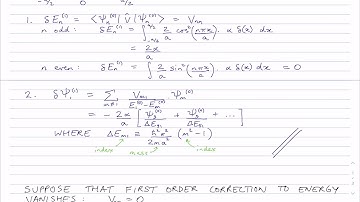 -a/2 0 a/2
1. δEₙ⁽¹⁾ = ⟨ψₙ⁽⁰⁾|V̂|ψₙ⁽⁰⁾⟩ = Vₙₙ
n odd: δEₙ⁽¹⁾ = ∫ 2/a cos²(nπx/a) . α δ(x) dx
= 2α/a
n even: δEₙ⁽¹⁾ = ∫ 2/a sin²(nπx/a) . α δ(x) dx = 0
2. δψ₁⁽¹⁾ = Σ_{m≠1} Vₘ₁/(E₁⁽⁰⁾-Eₘ⁽⁰⁾) ψₘ⁽⁰⁾
= - 2α/a [ψ₃⁽⁰⁾/ΔE₃₁ + ψ₅⁽⁰⁾/ΔE₅₁ + ...]
WHERE ΔEₘ₁ = ħ²π²/2ma² (m²-1)
index mass index
SUPPOSE THAT FIRST ORDER CORRECTION TO ENERGY
VANISHES: = 0